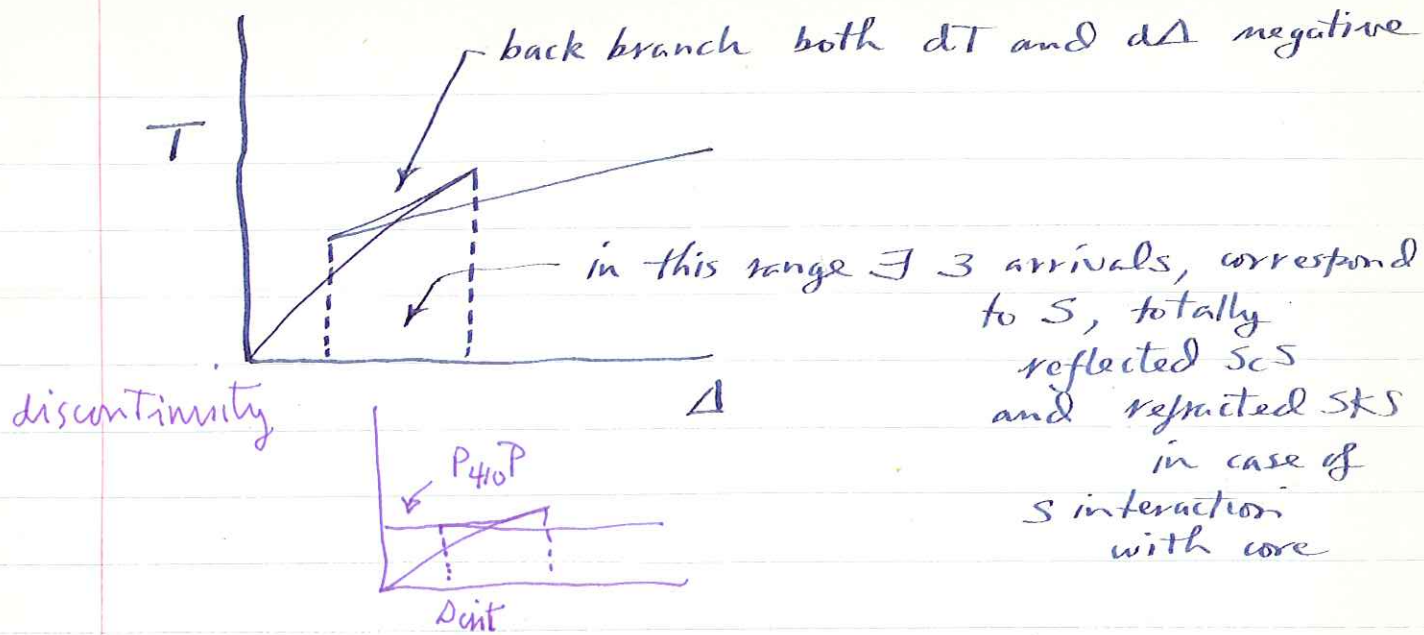 back branch both dT and dΔ negative
T
in this range ∃ 3 arrivals, correspond
to S, totally
reflected ScS
and refracted SKS
in case of
S interaction
with core
Δ
discontinuity
P410P